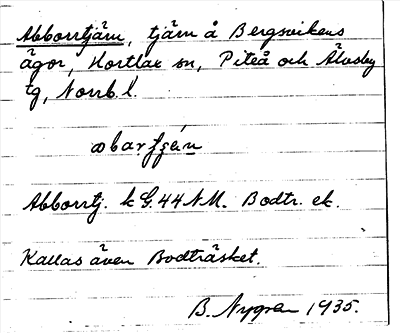 Abborrtjärn, tjärn å Bergsvikens
ägor, Hortlax sn, Piteå och Älvsby
tg, Norrb. l.
Abborrtj. k G. 44 N.M. Bodtr. ek.
Kallas även Bodträsket.
B. Nygren 1935.